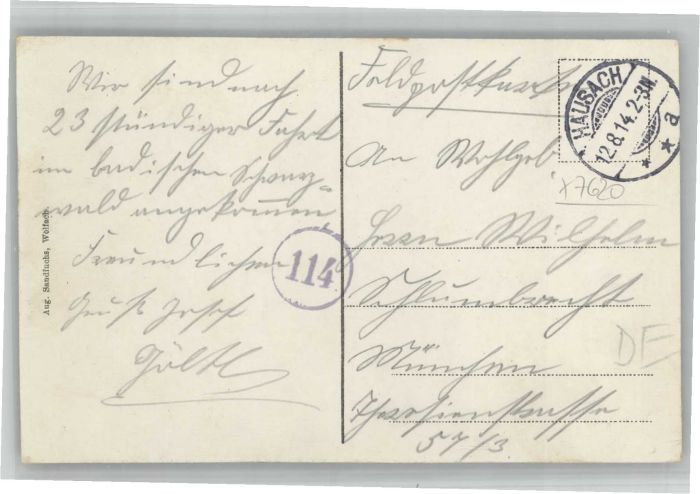 Wir sind nach
23 stündiger Fahrt
im badischen Schwarz-
wald angekommen,
Freundlichen
Gruß Josef
Göltl
Aug. Sandfuchs, Wolfach.
114
Feldpostkarte
HAUSACH
12.8.14.2-3N.
* * a
x7620
An Wohlgeb
Herrn Wilhelm
Schlumbrecht
DE
München
Theresienstrasse
57/3